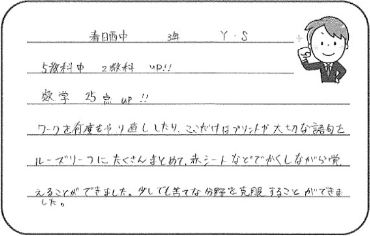 春日西中 3年 Y・S
5教科中 2教科 UP!!
数学 25点 UP!!
ワークを何度もやり直ししたり、ここだけはプリントが大切な語句を
ルーズリーフにたくさんまとめて、赤シートなどでかくしながら覚
えることができました。少しでも苦手な分野を克服することができま
した。